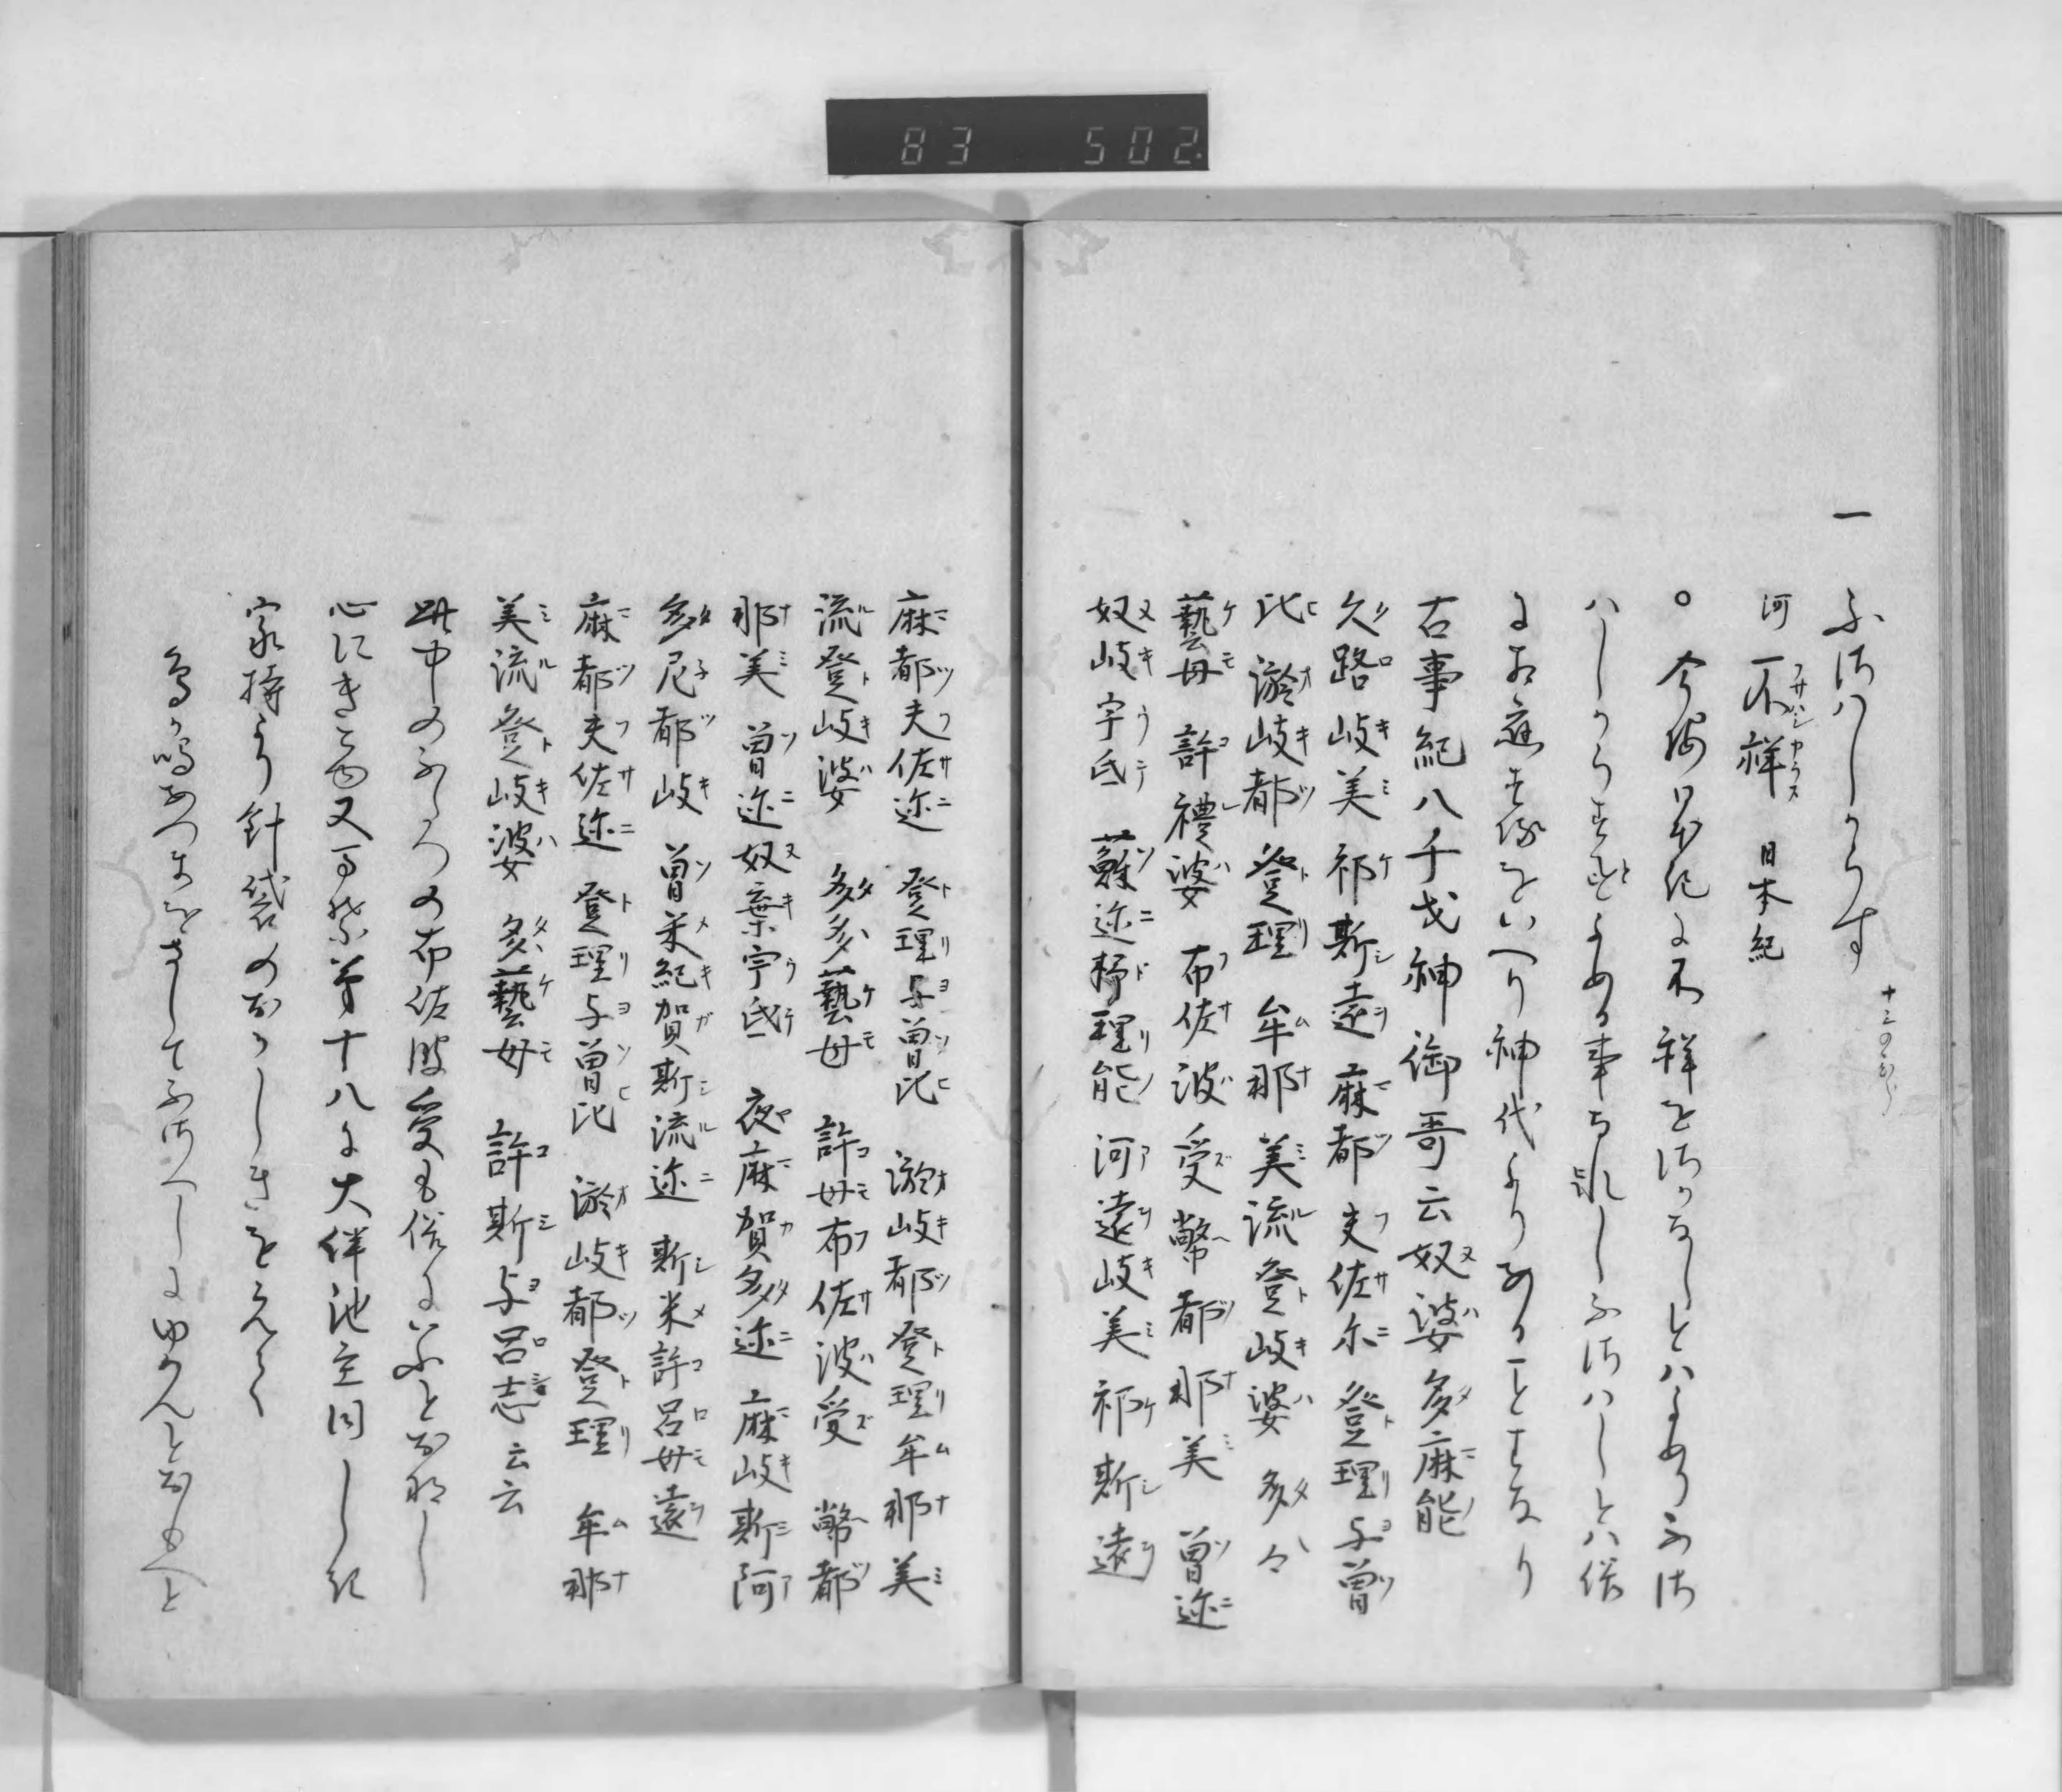 83 502.
一 ふさはしからす 十三のひら
河 不祥 日本紀
フサハシカラス
○今按日本紀に不祥をさかなしとはよめりふさ
はしからすとよめる事なしふさはしとは俗
神代よりあることなり
古事紀八千戈神御哥云奴婆多麻能
久路岐美祁斯遠 麻都夫佐尓 登理与曽
比 淤岐都登理 牟那美流登岐婆 多々
藝母 許禮婆 布佐波受 幣都那美 曽迩
奴岐宇氐 蘇迩杼理能 河遠岐美祁斯遠
麻都夫佐迩 登理与曽比 淤岐都登理牟那美
流登岐婆 多多藝母 許母布佐波受 幣都
那美 曽迩奴棄宇氐 夜麻賀多迩 麻岐斯阿
多尼都岐 曽米紀賀斯流迩 斯米許呂母遠
麻都夫佐迩 登理与曽比 淤岐都登理 牟那
美流登岐婆 多藝母 許斯与呂志云云
此中のふたつの布佐波受も俗にいふとおなし
心にきこゆ又万葉第十八に大伴池主同しく
家持より針袋のおかしきをえて
鳥か鳴あつまをさしてふさへしにゆかんとおもへと